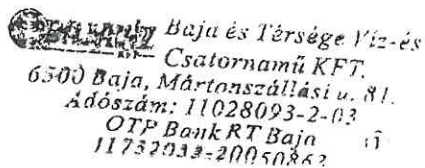 Baja és Térsége Víz-és
Csatornamű KFT.
6500 Baja, Mártonszállási u. 81.
Adószám: 11028093-2-03
OTP Bank RT Baja
11732033-20050862